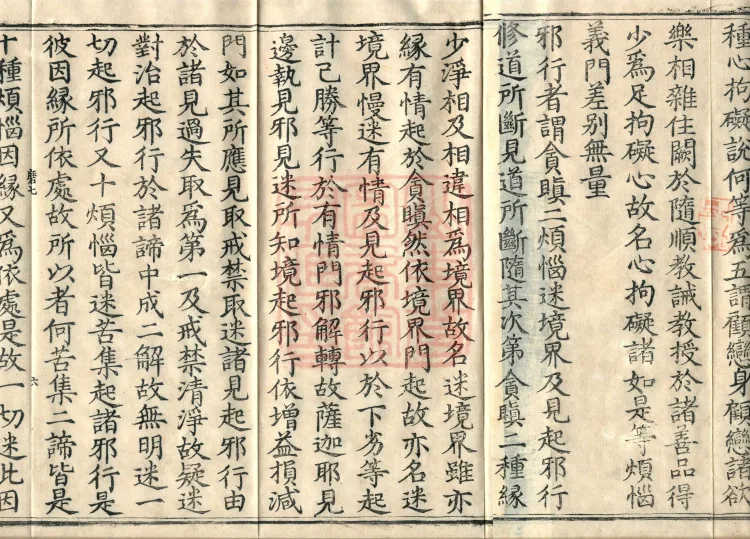 種心拘礙說何等爲五謂顧戀身顧戀諸欲
樂相雜住闕於隨順教誡教授於諸善品得
少爲足拘礙心故名心拘礙諸如是等煩惱
義門差别無量
邪行者謂貪瞋二煩惱迷境界及見起邪行
修道所斷見道所斷隨其次第貪瞋二種緣
少淨相及相違相爲境界故名迷境界雖亦
緣有情起於貪瞋然依境界門起故亦名迷
境界慢迷有情及見起邪行以於下劣等起
計己勝等行於有情門邪解轉故薩迦耶見
邊執見邪見迷所知境起邪行依增益損減
門如其所應見取戒禁取迷諸見起邪行由
於諸見過失取爲第一及戒禁清淨故疑迷
對治起邪行於諸諦中成二解故無明迷一
切起邪行又十煩惱皆迷苦集起諸邪行是
彼因緣所依處故所以者何苦集二諦皆是
磨七 六
十種煩惱因緣又爲依處是故一切迷此因